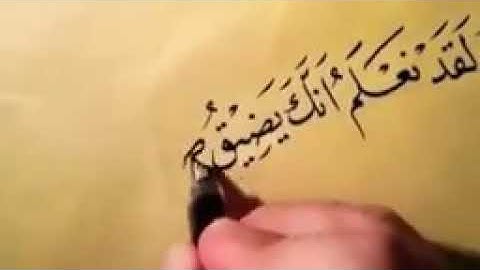 لَقَدْ نَعْلَمُ أَنَّكَ يَضِيْقُ